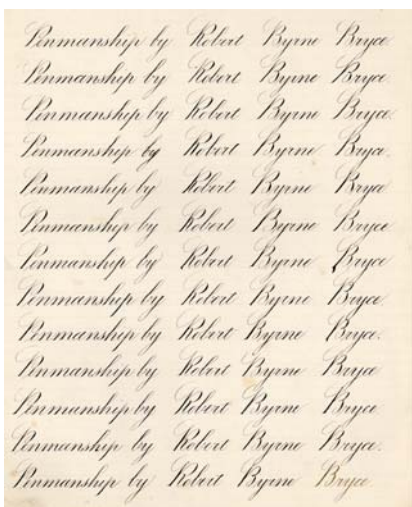 Penmanship by Robert Byrne Bryce.
Penmanship by Robert Byrne Bryce.
Penmanship by Robert Byrne Bryce.
Penmanship by Robert Byrne Bryce.
Penmanship by Robert Byrne Bryce
Penmanship by Robert Byrne Bryce
Penmanship by Robert Byrne Bryce
Penmanship by Robert Byrne Bryce.
Penmanship by Robert Byrne Bryce.
Penmanship by Robert Byrne Bryce
Penmanship by Robert Byrne Bryce.
Penmanship by Robert Byrne Bryce.
Penmanship by Robert Byrne Bryce